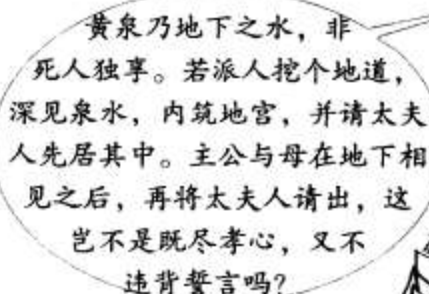 黄泉乃地下之水，非
死人独享。若派人挖个地道，
深见泉水，内筑地宫，并请太夫
人先居其中。主公与母在地下相
见之后，再将太夫人请出，这
岂不是既尽孝心，又不
违背誓言吗？